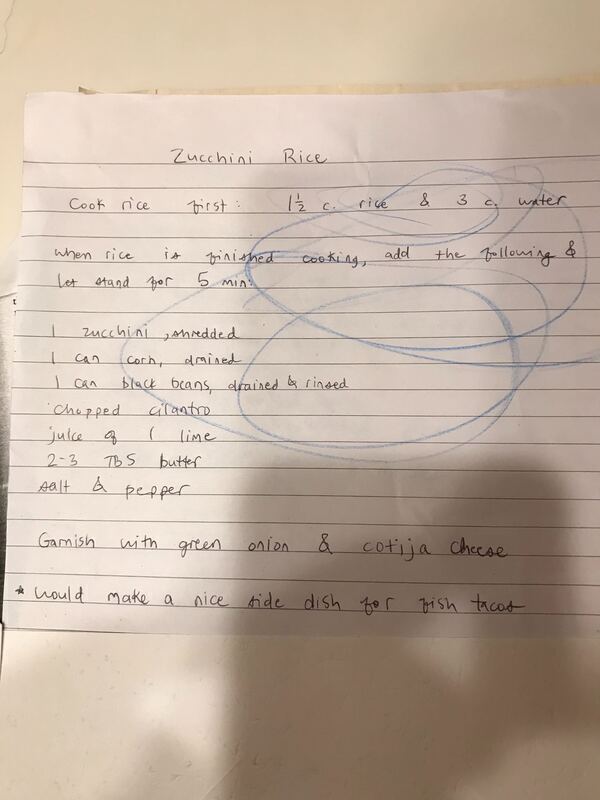 Zucchini Rice
Cook rice first: 1 1/2 c. rice & 3 c. water
when rice is finished cooking, add the following &
let stand for 5 min:
1 zucchini, shredded
1 can corn, drained
1 can black beans, drained & rinsed
chopped cilantro
juice of 1 lime
2-3 TBS butter
salt & pepper
Garnish with green onion & cotija cheese
* would make a nice side dish for fish tacos